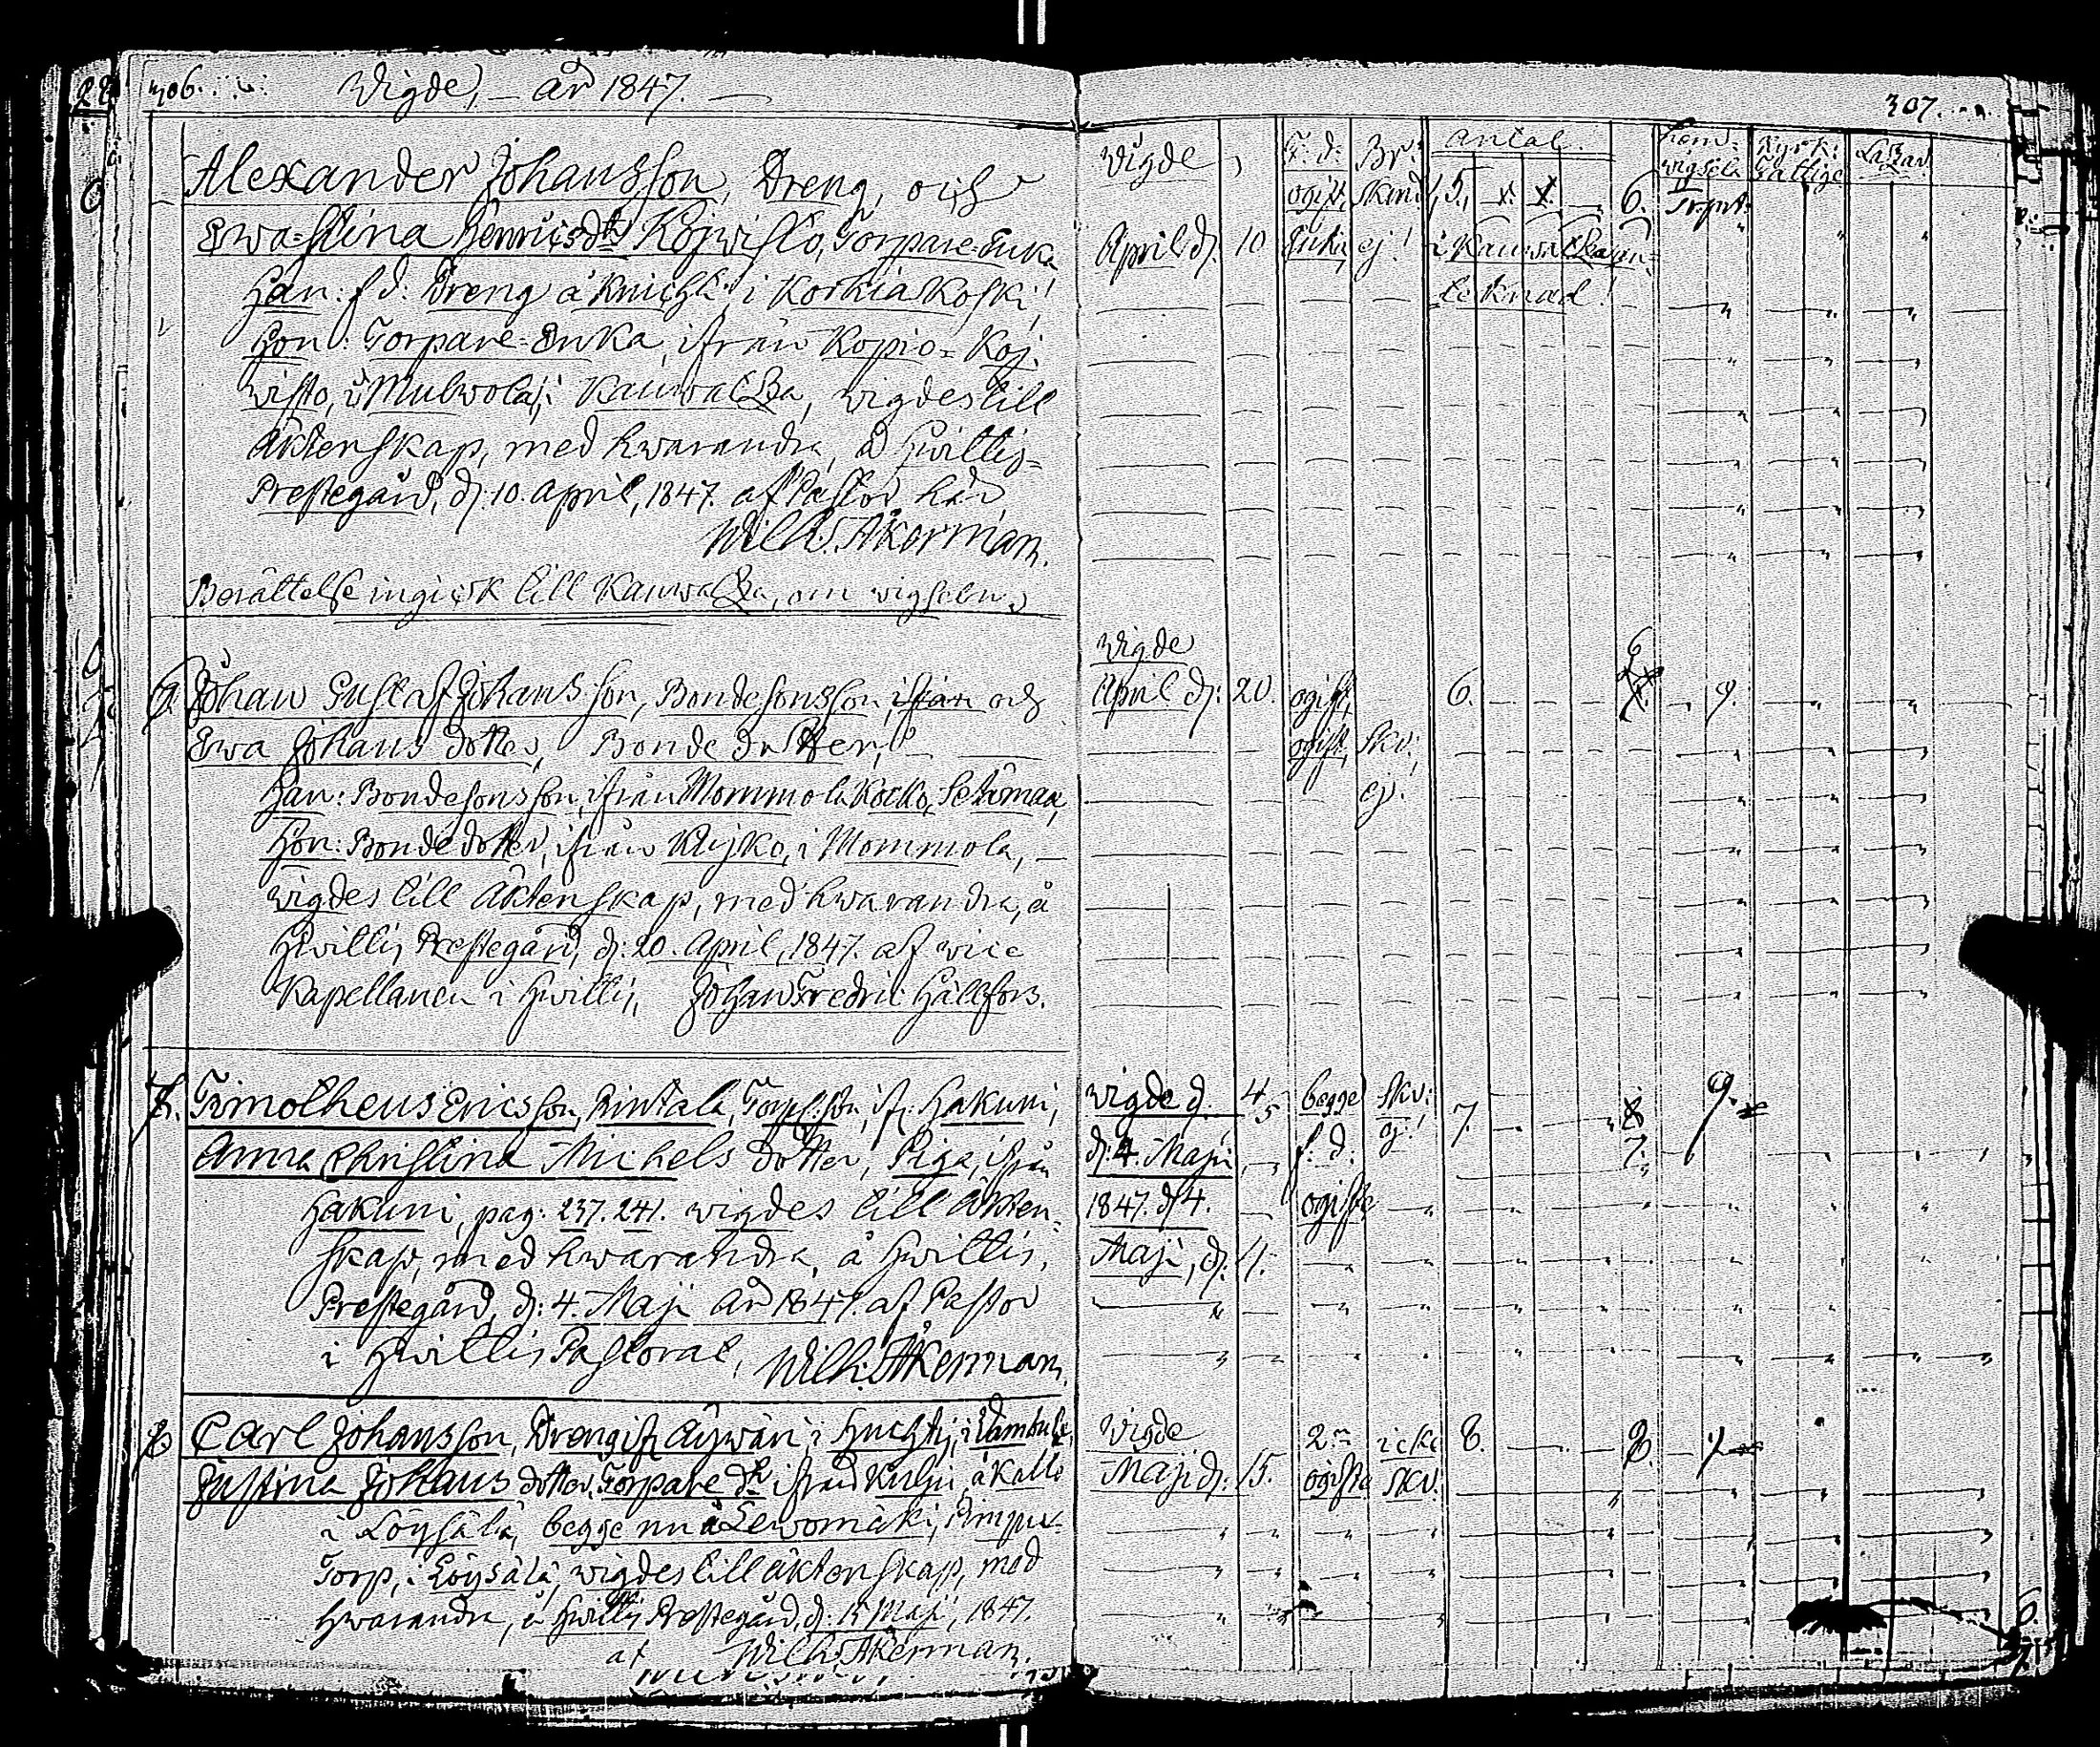 306. Wigde, år 1847. —
Alexander Johansson, Dreng, och
Ewa Stina Henricsdr Kojwisto, Torpare-Enka
Han: f d: Dreng å Knichti i Korkiakoski!
Hon: Torpare-Enka, ifrån Kopio-Koj-
wisto, i Mulwola, i Kauwatza, wigdes till
Äktenskap, med hwarandra, å Hwittis-
Prestegård, d: 10. April, 1847. af Pastor här,
Wilh. Åkerman.
Berättelse ingick till Kauwatza, om wigseln.
6. Johan Gustaf Johansson, Bondesonsson, ifrån och
Ewa Johans dotter, Bonde dotter,
Han: Bondesonsson, ifrån Mommola Kocko,
Hon: Bonde dotter, ifrån Klijko, i Mommola, —
wigdes till Äktenskap, med hwarandra, å
Hwittis Prestegård, d: 20. April, 1847. af vice
Kapellanen i Hwittis, Johan Fredric Hällfors.
7. Timotheus Ericsson, Rintala, Torp: son, ifr: Hakuni,
Anna Christina Michels dotter, Piga, ifrån
Hakuni, pag: 237. 241. wigdes till Äkten-
skap, med hwarandra, å Hwittis,
Prestegård, d: 4. Maji år 1847. af Pastor
i Hwittis Pastorat, Wilh. Åkerman.
8. Carl Johansson, Dreng ifr Äijwäri, i Huchti,
Justina Johans dotter, Torpare dr ifrån å Kallo
i Löysälä, begge nu å Lewomäki,
Torp, i Löysälä, wigdes till äktenskap, med
hwarandra, å Hwittis Prestegård, d: 15 Maji, 1847.
af Wilh. Åkerman.
307.
Wigde, F. d: Br: antal. hem- Kyrk:
ogift, 5. 6. wigsel Fattige
April d: 10 Enka, ej! i Kauwatza an-
teknad!
Wigde 6
April d: 20. ogift, 6. 9.
ogift, skv:
ej.
Wigde d. 4. begge skv: 7. 8 9.
d: 4. Maji f: d. ej! 7.
1847. d 4. ogifte
Maji, d: 4.
Wigde 2ne icke 8. 8.
Maji d: 15. ogifte skv.